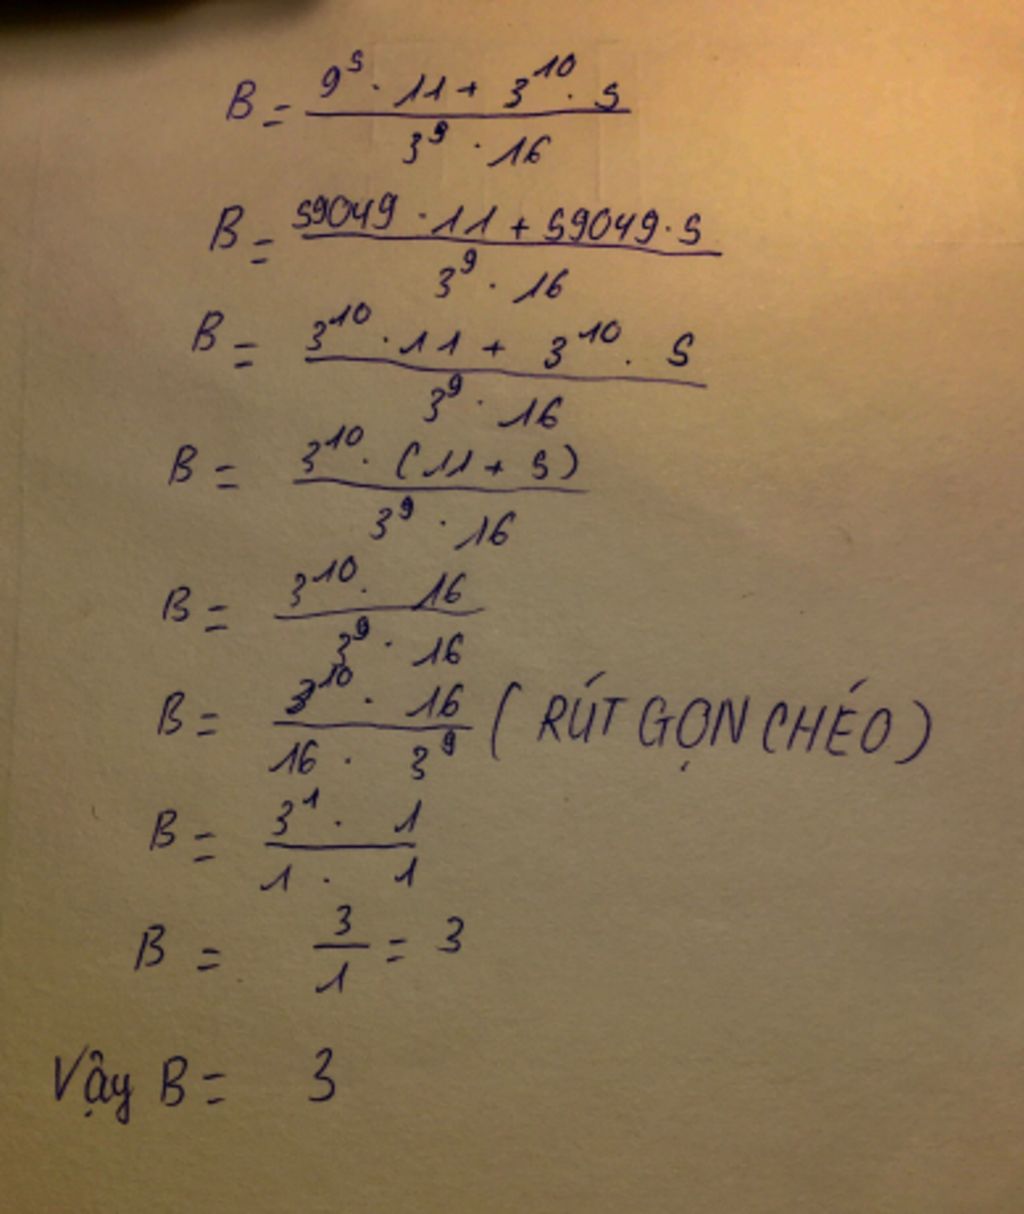 B = \frac{9^5 \cdot 11 + 3^{10} \cdot 5}{3^9 \cdot 16}
B = \frac{59049 \cdot 11 + 59049 \cdot 5}{3^9 \cdot 16}
B = \frac{3^{10} \cdot 11 + 3^{10} \cdot 5}{3^9 \cdot 16}
B = \frac{3^{10} \cdot (11 + 5)}{3^9 \cdot 16}
B = \frac{3^{10} \cdot 16}{3^9 \cdot 16}
B = \frac{3^{10} \cdot 16}{16 \cdot 3^9} (RÚT GỌN CHÉO)
B = \frac{3^1 \cdot 1}{1 \cdot 1}
B = \frac{3}{1} = 3
Vậy B = 3